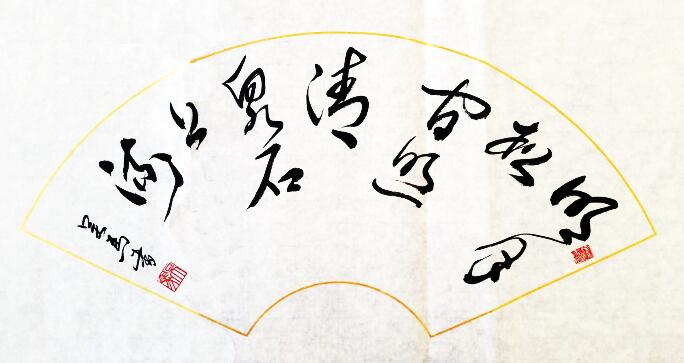 明月
松
间照
清
泉石
上
流